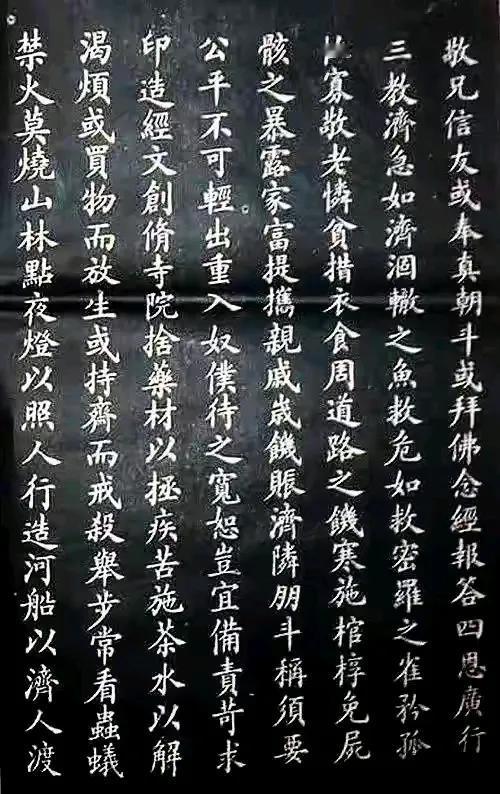 敬兄信友或奉真朝斗或拜佛念經報答四恩廣行
三教濟急如濟涸轍之魚救危如救密羅之雀矜孤
寡敬老憐貧措衣食周道路之饑寒施棺椁免屍
骸之暴露家富提攜親戚歲饑賑濟隣朋斗稱須要
公平不可輕出重入奴僕待之寬恕豈宜備責苛求
印造經文創脩寺院捨藥材以拯疾苦施茶水以解
渴煩或買物而放生或持齋而戒殺舉步常看蟲蟻
禁火莫燒山林點夜燈以照人行造河船以濟人渡